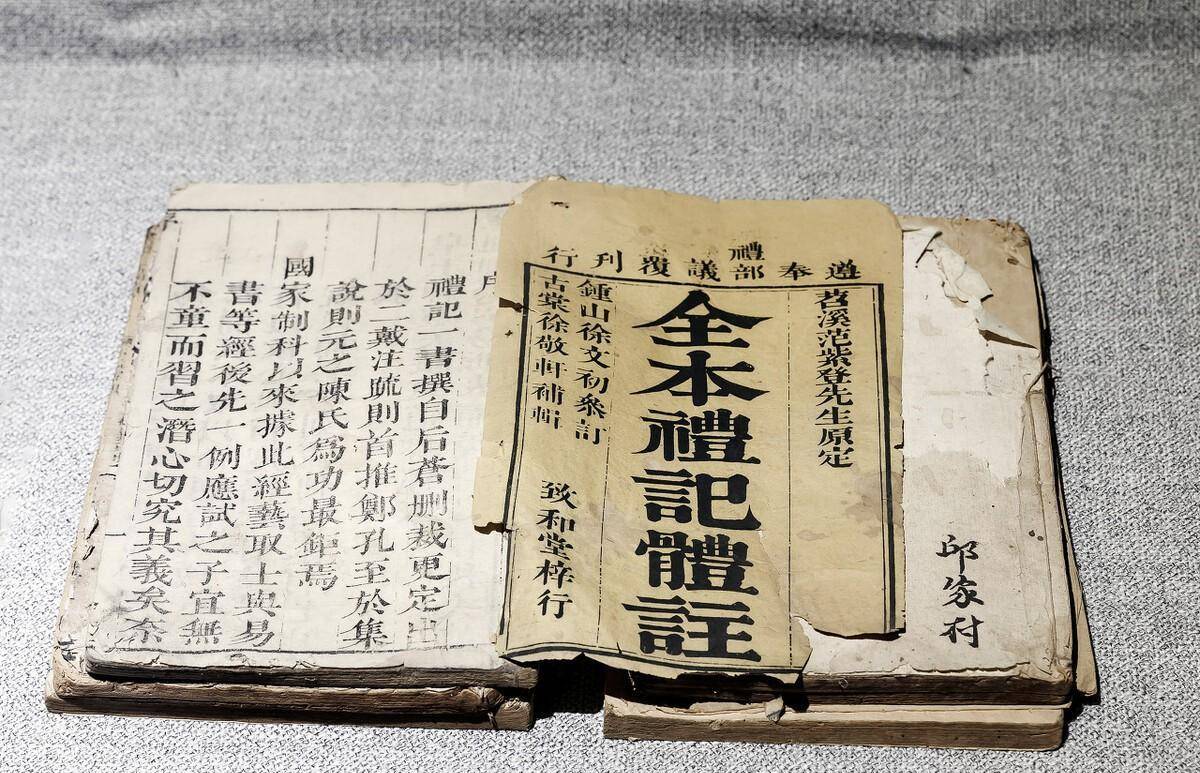 邱家村
遵奉禮部議覆刊行
苕溪范紫登先生原定
全本禮記體註
鍾山徐文初叅訂
古棠徐敬軒補輯
致和堂梓行
序
禮記一書撰自后蒼刪裁更定出
於二戴注疏則首推鄭孔至於集
說則元之陳氏爲功最鉅焉
國家制科以來據此經藝取士與易
書等經後先一例應試之子宜無
不童而習之潛心切究其義矣奈